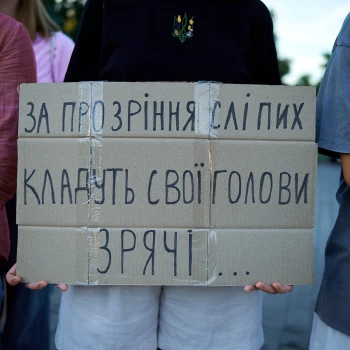 ЗА ПРОЗРІННЯ СЛІПИХ
КЛАДУТЬ СВОЇ ГОЛОВИ
ЗРЯЧІ ...